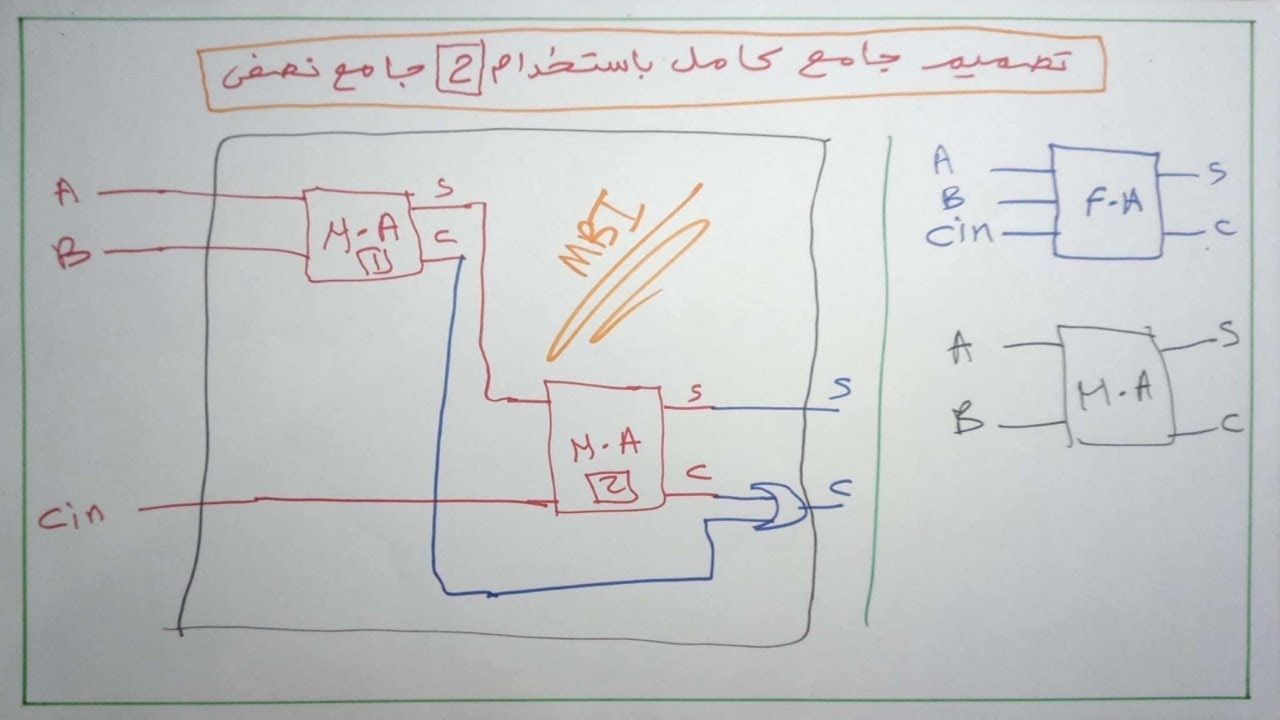 تصميم جامع كامل باستخدام 2 جامع نصفي
A
B
Cin
H-A
1
S
C
MBI
H-A
2
S
C
S
C
A
B
Cin
F-A
S
C
A
B
H-A
S
C